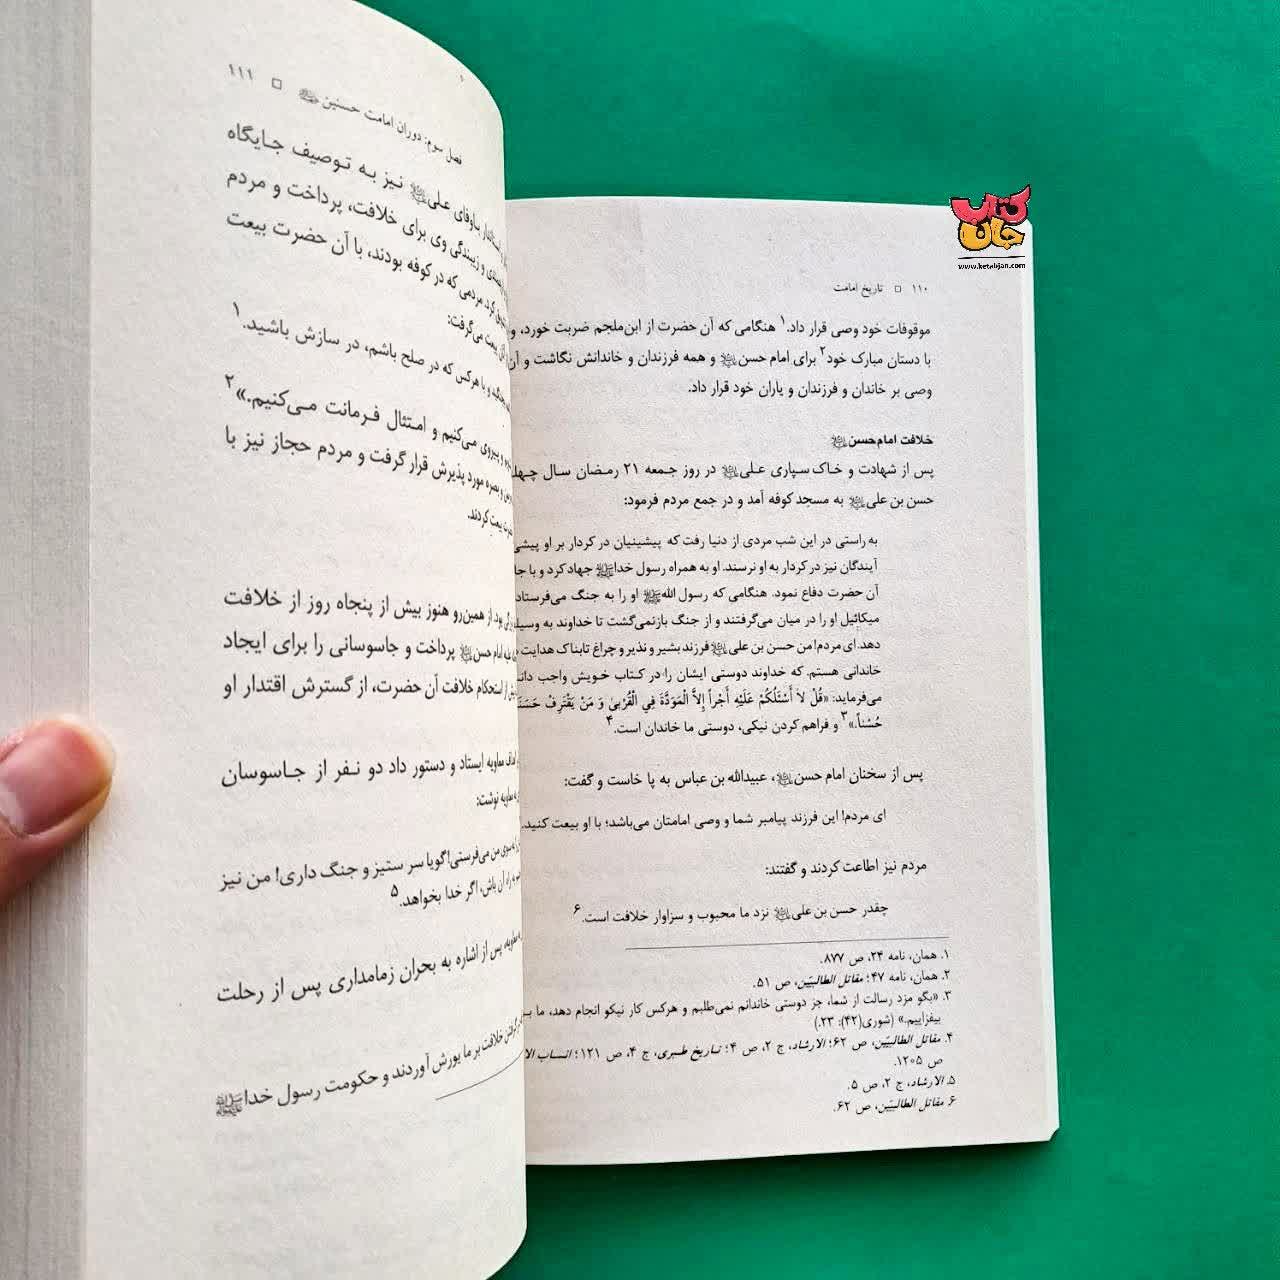 کتاب
جان
www.ketabjan.com
۱۱۰ □ تاریخ امامت
موقوفات خود وصی قرار داد.۱ هنگامی که آن حضرت از ابن‌ملجم ضربت خورد، و
با دستان مبارک خود۲ برای امام حسن و همه فرزندان و خاندانش نگاشت و آن
وصی بر خاندان و فرزندان و یاران خود قرار داد.
خلافت امام حسن
پس از شهادت و خاک سپاری علی در روز جمعه ۲۱ رمضان سال چهل
حسن بن علی به مسجد کوفه آمد و در جمع مردم فرمود:
به راستی در این شب مردی از دنیا رفت که پیشینیان در کردار بر او
آیندگان نیز در کردار به او نرسند. او به همراه رسول خدا جهاد کرد و با
آن حضرت دفاع نمود. هنگامی که رسول الله او را به جنگ می‌فرستاد
میکائیل او را در میان می‌گرفتند و از جنگ بازنمی‌گشت تا خداوند به
دهد. ای مردم! من حسن بن علی فرزند بشیر و نذیر و چراغ تابناک هدایت
خاندانی هستم که خداوند دوستی ایشان را در کتاب خویش واجب
می‌فرماید: «قُلْ لاَ أَسْئَلُكُمْ عَلَيْهِ أَجْراً إِلاَّ الْمَوَدَّةَ فِي الْقُرْبىٰ وَ مَنْ يَقْتَرِفْ
حُسْناً.»۳ و فراهم کردن نیکی، دوستی ما خاندان است.۴
پس از سخنان امام حسن، عبیدالله بن عباس به پا خاست و گفت:
ای مردم! این فرزند پیامبر شما و وصی امامتان می‌باشد؛ با او بیعت کنید.
مردم نیز اطاعت کردند و گفتند:
چقدر حسن بن علی نزد ما محبوب و سزاوار خلافت است.۶
۱. همان، نامه ۲۴، ص ۸۷۷.
۲. همان، نامه ۴۷؛ مقاتل الطالبیّین، ص ۵۱.
۳. «بگو مزد رسالت از شما، جز دوستی خاندانم نمی‌طلبم و هرکس کار نیکو انجام دهد، ما
بیفزاییم.» (شوری(۴۲): ۲۳.)
۴. مقاتل الطالبیّین، ص ۶۲؛ الارشاد، ج ۲، ص ۴؛ تاریخ طبری، ج ۴، ص ۱۲۱؛ انساب
ص ۱۲۰۵.
۵. الارشاد، ج ۲، ص ۵.
۶. مقاتل الطالبیّین، ص ۶۲.
فصل سوم: دوران امامت حسنین □ ۱۱۱
باوفای علی نیز به توصیف جایگاه
و زیبندگی وی برای خلافت، پرداخت و مردم
کرد. مردمی که در کوفه بودند، با آن حضرت بیعت
بیعت می‌گرفت:
و با هرکس که در صلح باشم، در سازش باشید.۱
و پیروی می‌کنیم و امتثال فرمانت می‌کنیم.»۲
و بصره مورد پذیرش قرار گرفت و مردم حجاز نیز با
بیعت کردند.
بود. از همین‌رو هنوز بیش از پنجاه روز از خلافت
امام حسن پرداخت و جاسوسانی را برای ایجاد
از استحکام خلافت آن حضرت، از گسترش اقتدار او
معاویه ایستاد و دستور داد دو نفر از جاسوسان
به معاویه نوشت:
سوی من می‌فرستی! گویا سر ستیز و جنگ داری! من نیز
آن باش، اگر خدا بخواهد.۵
معاویه، پس از اشاره به بحران زمامداری پس از رحلت
گرفتن خلافت بر ما یورش آوردند و حکومت رسول خدا